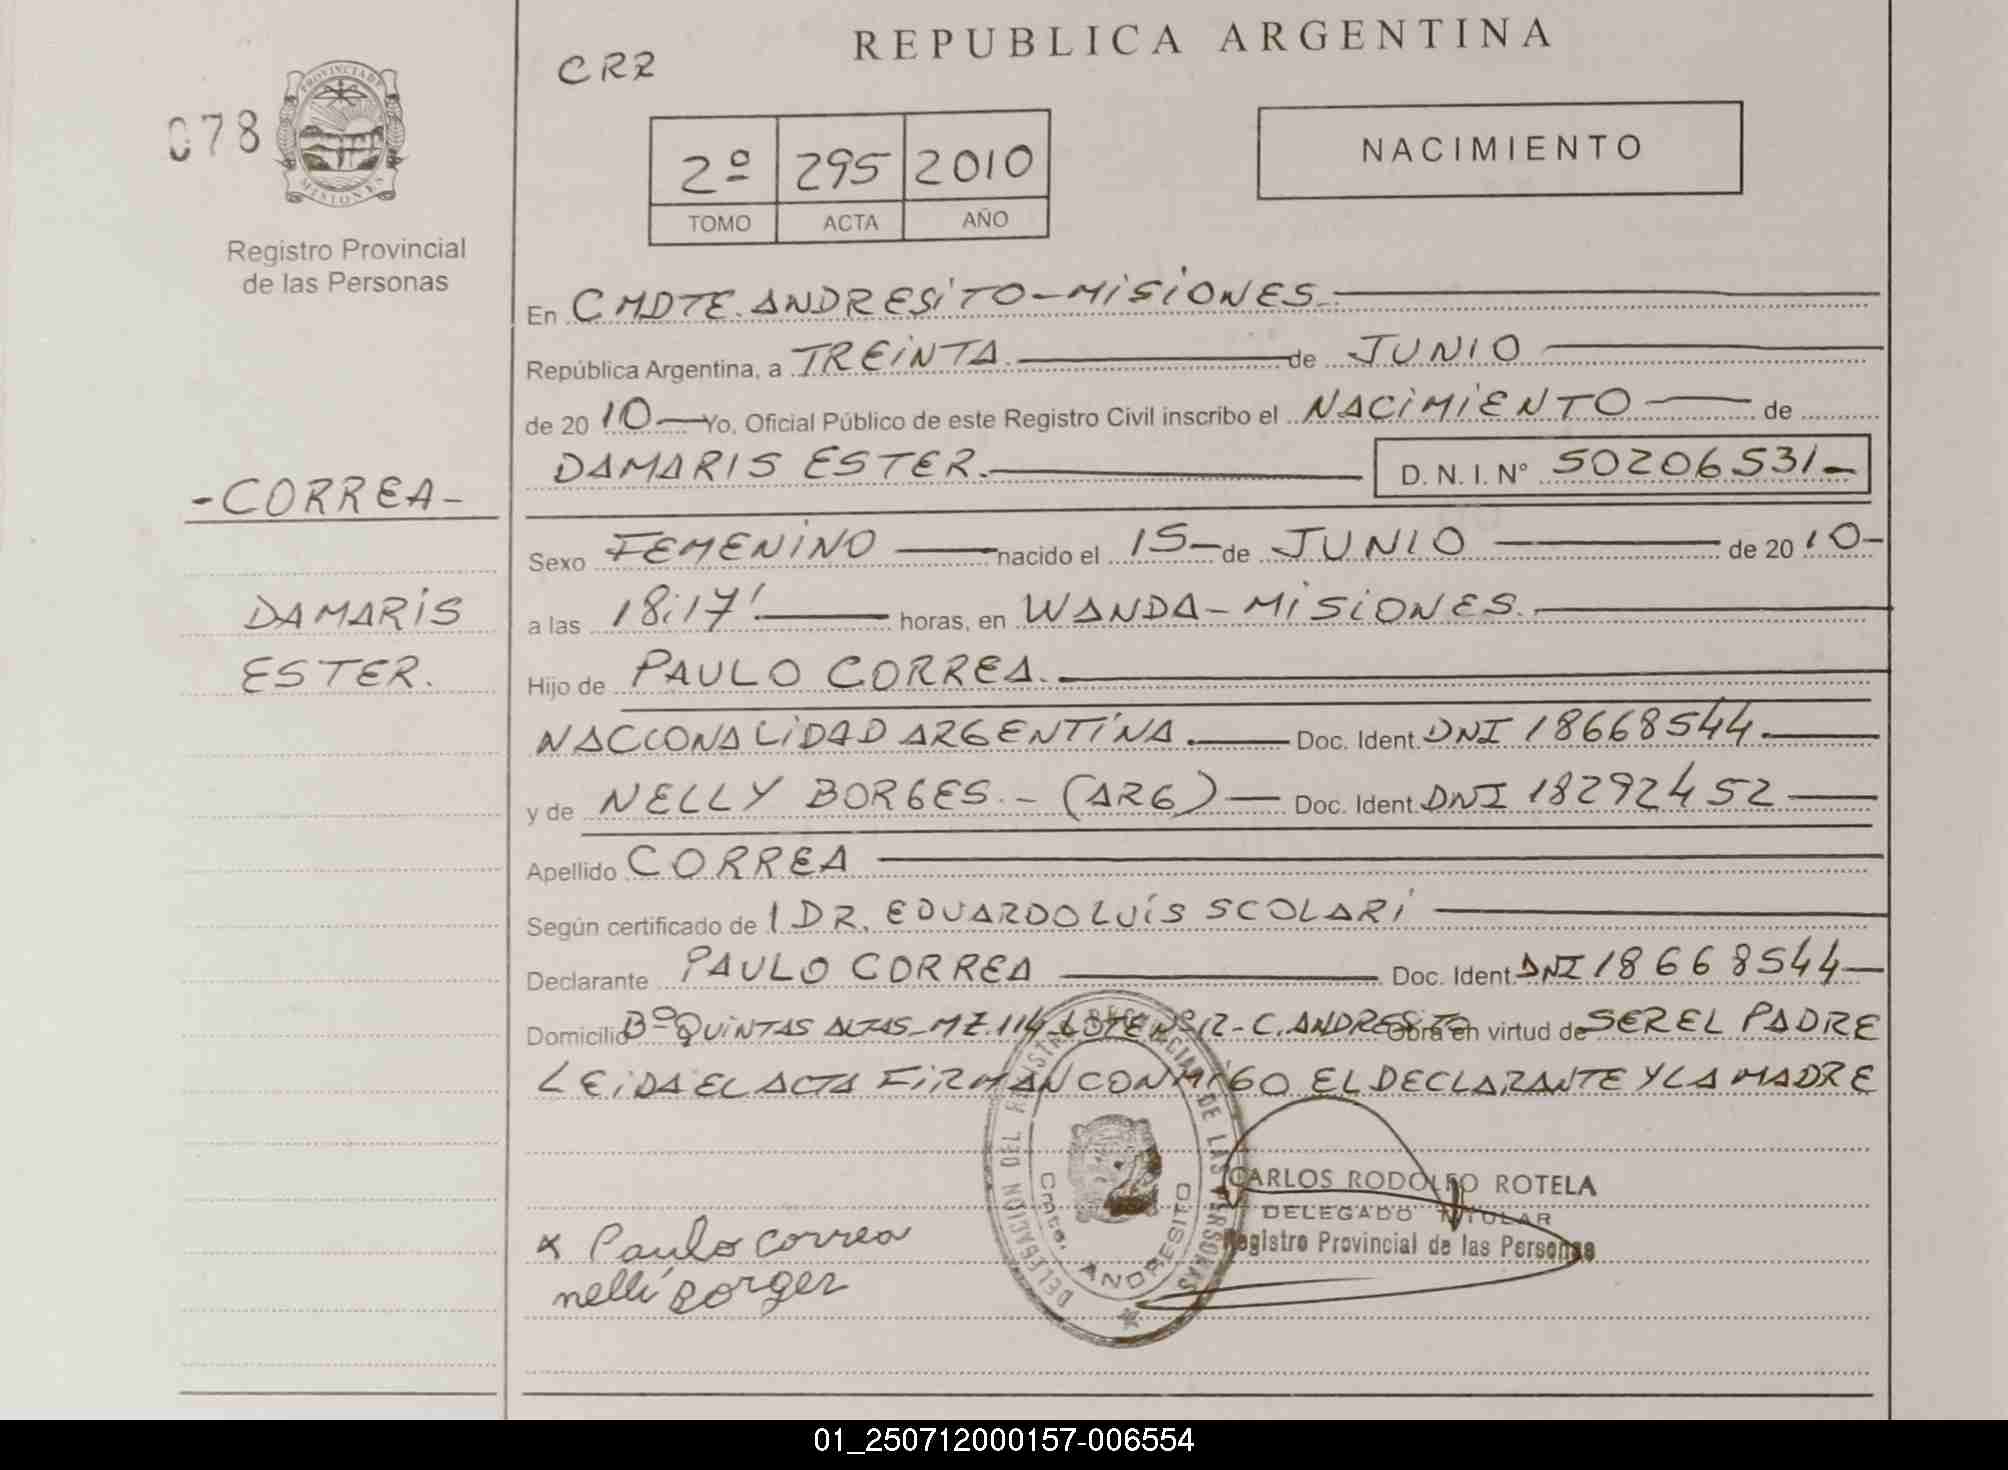 REPUBLICA ARGENTINA
CRZ
078
PROVINCIA DE
MISIONES
Registro Provincial
de las Personas
2º 295 2010
TOMO ACTA AÑO
NACIMIENTO
En CMDTE. ANDRESITO - MISIONES.
República Argentina, a TREINTA. de JUNIO
de 20 10 Yo, Oficial Público de este Registro Civil inscribo el NACIMIENTO de
DAMARIS ESTER. D. N. I. Nº 50206531-
-CORREA-
DAMARIS
ESTER.
Sexo FEMENINO nacido el 15- de JUNIO de 20 10-
a las 18:17' horas, en WANDA - MISIONES.
Hijo de PAULO CORREA.
NACCONALIDAD ARGENTINA. Doc. Ident. DNI 18668544.
y de NELLY BORGES.- (ARG) - Doc. Ident. DNI 18292452
Apellido CORREA
Según certificado de 1 DR. EDUARDO LUÍS SCOLARI
Declarante PAULO CORREA Doc. Ident. DNI 18668544-
Domicilio Bº QUINTAS ALTAS - MZ.114 LOTE Nº12 - C. ANDRESITO Obra en virtud de SER EL PADRE
LEIDA EL ACTA FIRMAN CONMIGO EL DECLARANTE Y LA MADRE
DELEGACION DEL REGISTRO PROVINCIAL DE LAS PERSONAS
Cmte. ANDRESITO
CARLOS RODOLFO ROTELA
DELEGADO TITULAR
Registro Provincial de las Personas
x Paulo correa
nelli Borger
01_250712000157-006554